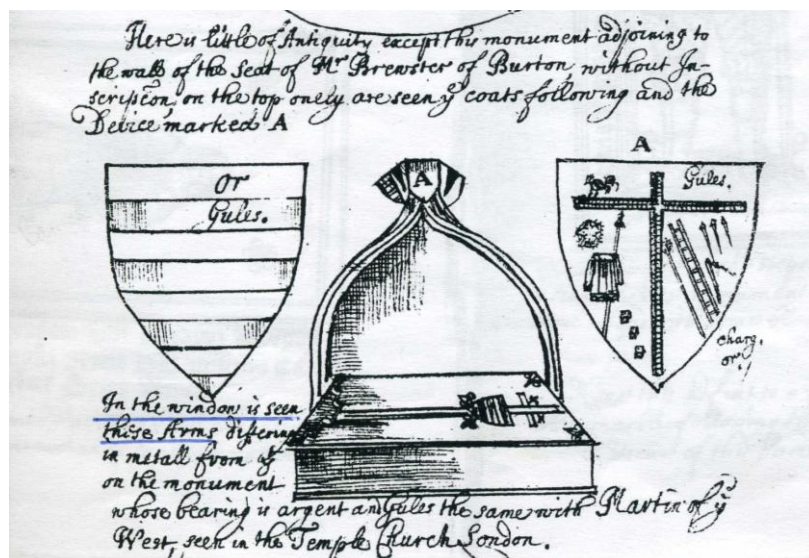 Here is little of Antiquity except this monument adjoining to
the wall of the Seat of Mr Brewster of Burton, without In-
scripcon, on the top onely, are seen ye coats following and the
Device, marked A
A
Or
Gules.
A
Gules.
charg.
or.
In the window is seen
these Arms differing
in metall from yt
on the monument
whose bearing is argent and Gules the same with Martin of ye
West, seen in the Temple Church London.